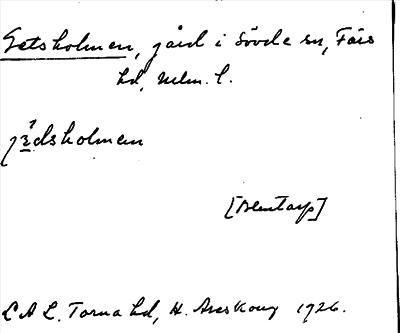 Getsholmen, gård i Sövde sn, Färs
hd, Mlm. l.
jädsholmen
[Bentarp]
LAL. Torna hd, H. Areskoug 1926.